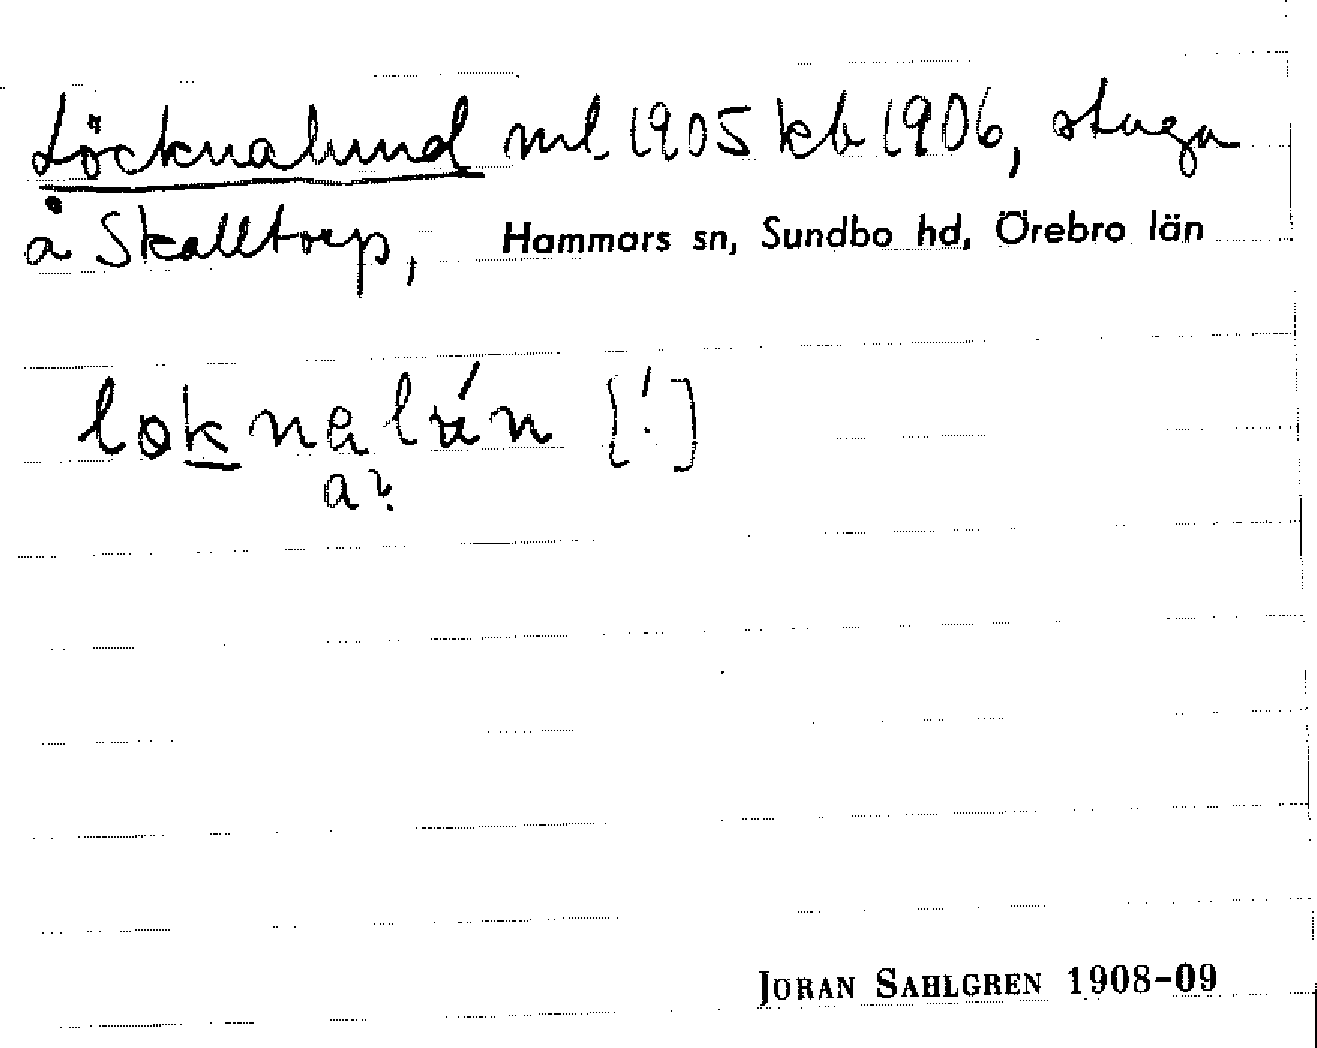 Löcknalund ml 1905 kb 1906, stuga
å Skalltorp, Hammars sn, Sundbo hd, Örebro län
loknalún [!]
a?
JÖRAN SAHLGREN 1908-09